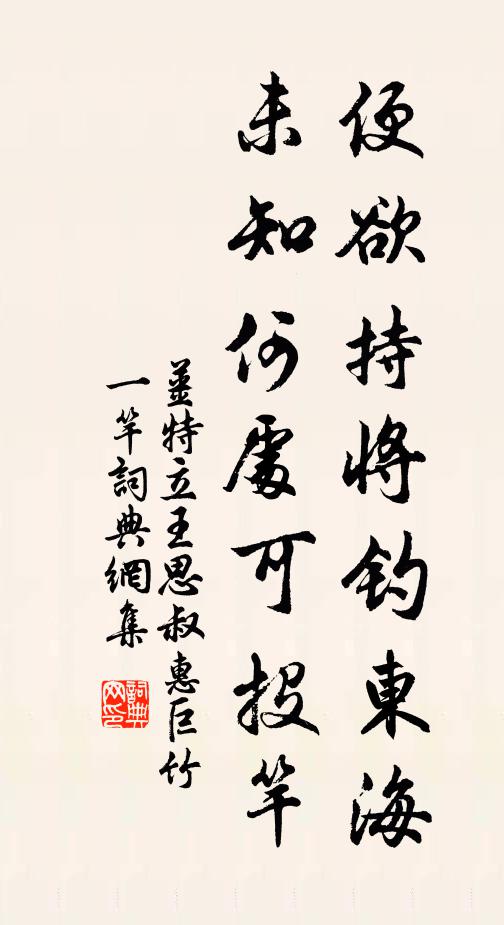 便欲持將釣東海
未知何處可投竿
姜特立王思叔惠巨竹
一竿詞典網集
詞典
网印